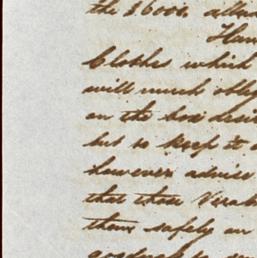 the $6000. allow
Han
Clothes which
will much oblig
on the box desir
but so keep it a
however advise
that those
them safely on